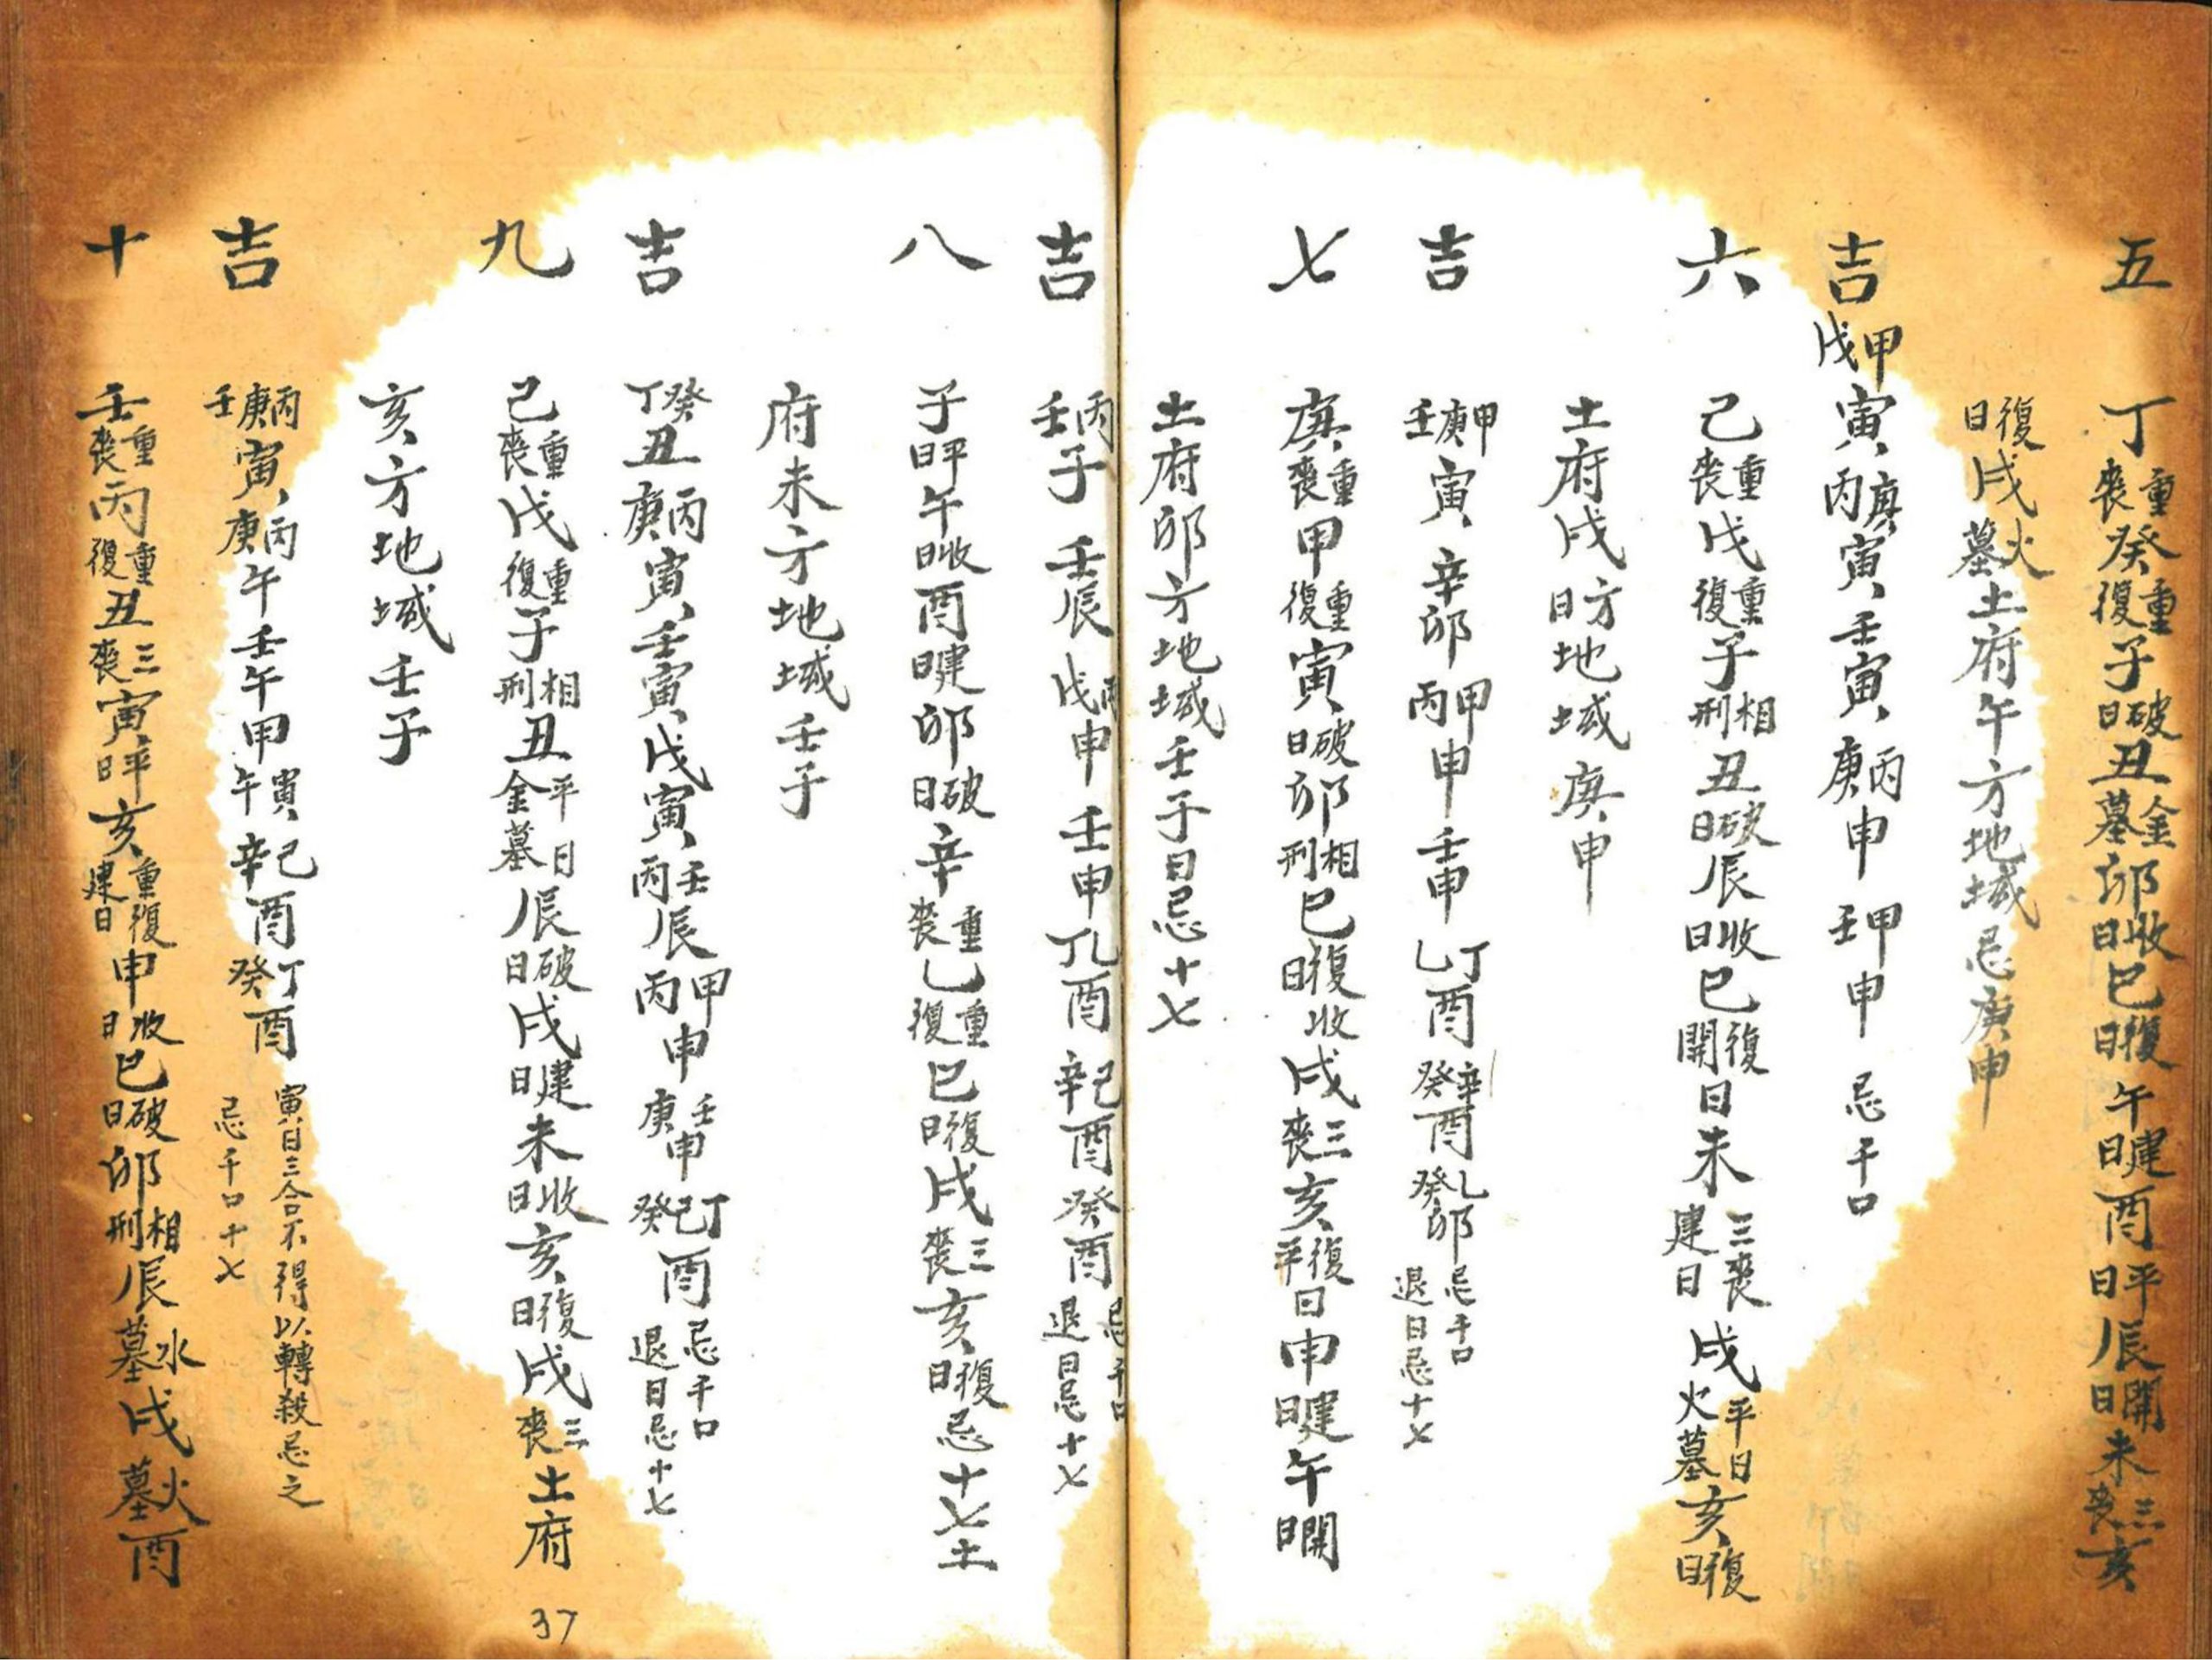 五 丁重喪癸重復子破日丑金墓卯收日巳復日午建日酉平日辰開日未三喪亥
復日戌火墓土府午方地域忌庚申
吉 甲戊寅庚丙寅壬寅丙庚申甲壬申忌千口
六 己重喪戊重復子相刑丑破日辰收日巳復開日未三喪建日戌平日火墓亥復日
土府戌方日地域庚申
吉 甲庚壬寅辛卯甲丙申壬申丁乙酉辛癸酉乙癸卯忌千口退日忌十七
七 庚重喪甲重復寅破日卯相刑巳復日收戌三喪亥復平日申建日午開日
土府卯方地域壬子日忌十七
吉 丙壬子壬辰丙戊申壬申乙丁酉己辛酉癸酉忌千口退日忌十七
八 子平日午收日酉建日卯破日辛重喪乙重復巳復日戌三喪亥復日忌十七土
府未方地域壬子
吉 癸丁丑丙庚寅壬寅戊寅壬丙辰甲丙申壬庚申丁己癸酉忌千口退日忌十七
九 己重喪戊重復子相刑丑平日金墓辰破日戌建日未收日亥復日戌三喪土府
亥方地域壬子
吉 丙庚壬寅丙庚午壬午甲寅午己辛酉丁癸酉寅日三合不得以轉殺忌之忌千口十七
十 壬重喪丙重復丑三喪寅平日亥重復建日申收日巳破日卯相刑辰水墓戌火墓酉
37